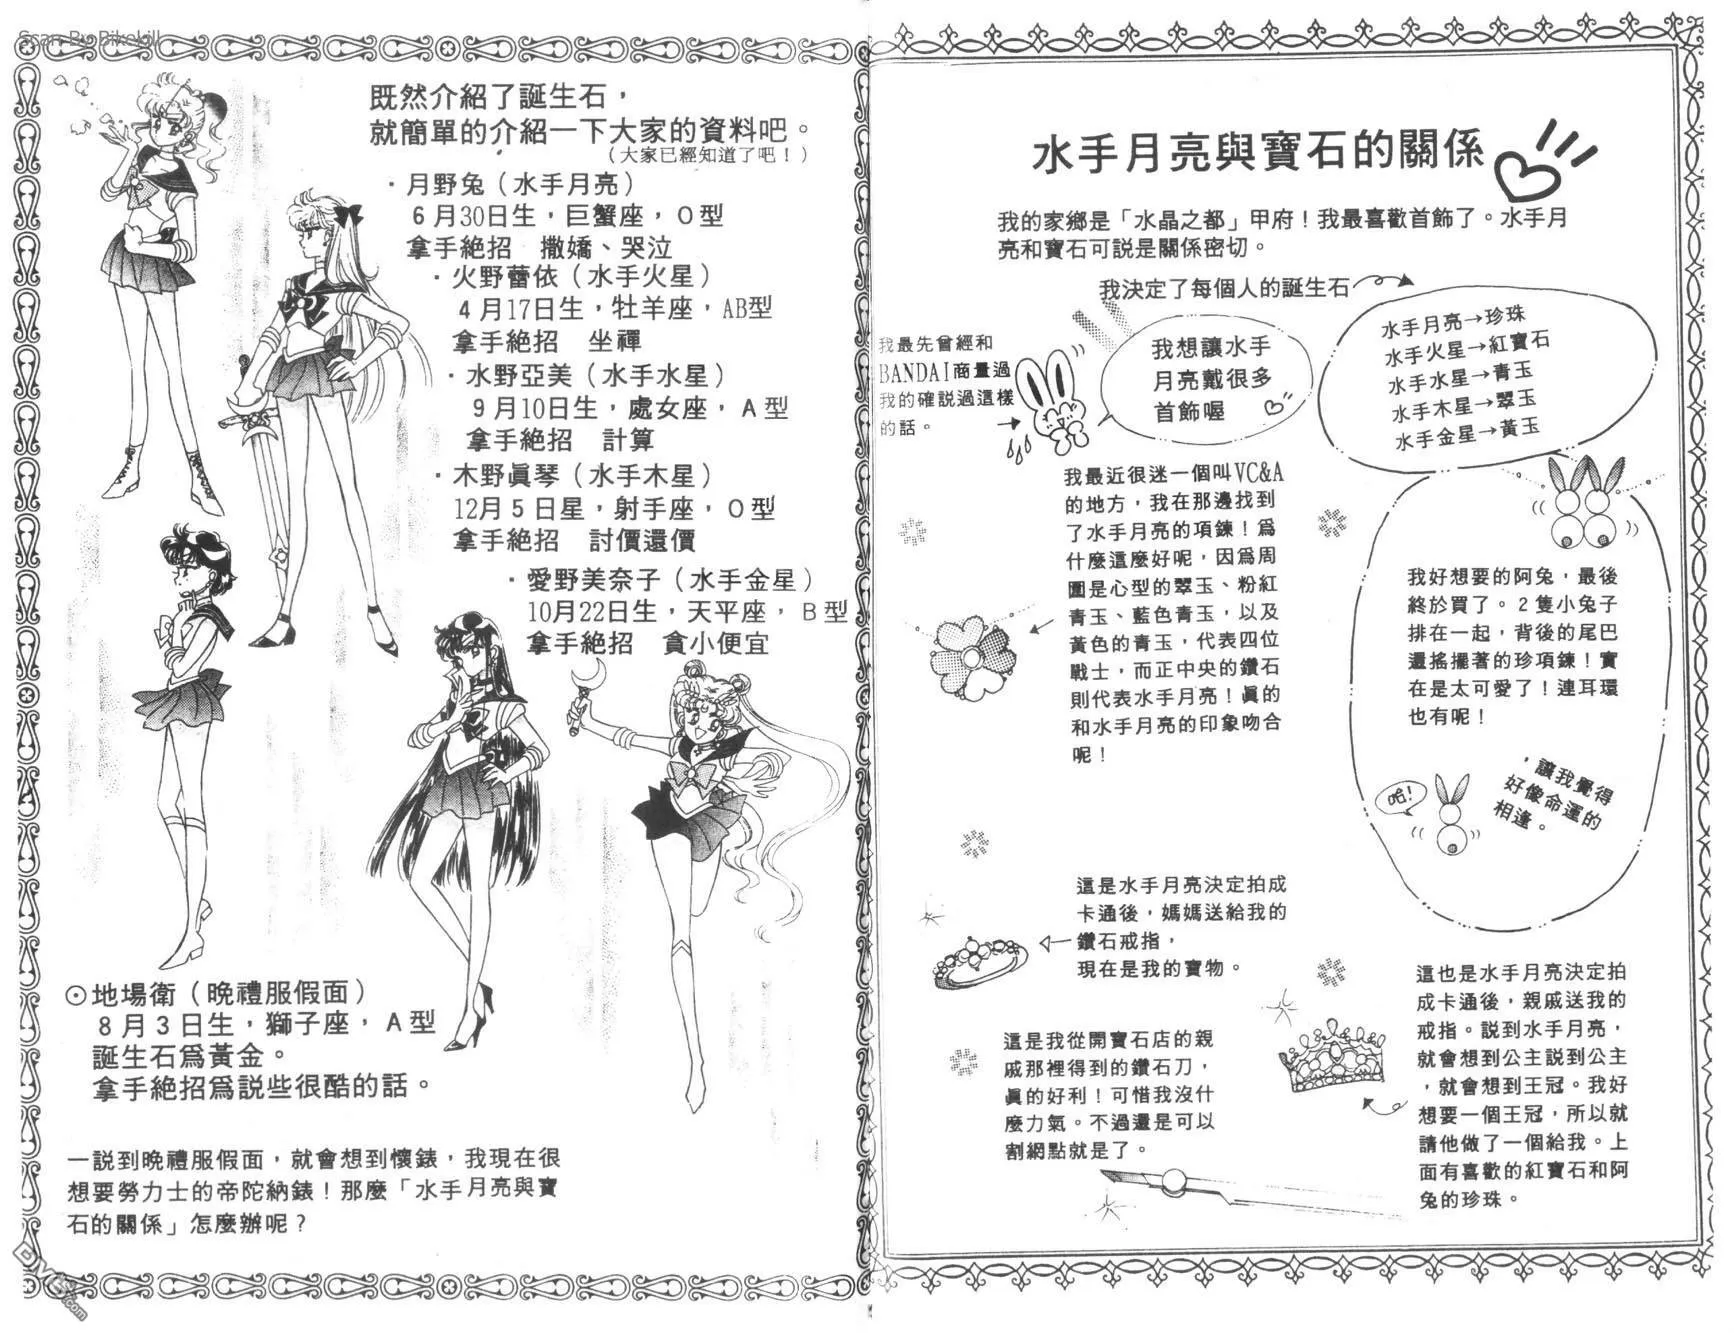 水手月亮與寶石的關係
我的家鄉是「水晶之都」甲府！我最喜歡首飾了。水手月
亮和寶石可説是關係密切。
我決定了每個人的誕生石
水手月亮→珍珠
水手火星→紅寶石
水手水星→青玉
水手木星→翠玉
水手金星→黃玉
我想讓水手
月亮戴很多
首飾喔
我最先曾經和
BANDAI商量過
我的確説過這樣
的話。
我最近很迷一個叫VC&A
的地方，我在那邊找到
了水手月亮的項鍊！爲
什麼這麼好呢，因爲周
圍是心型的翠玉、粉紅
青玉、藍色青玉，以及
黃色的青玉，代表四位
戰士，而正中央的鑽石
則代表水手月亮！眞的
和水手月亮的印象吻合
呢！
我好想要的阿兔，最後
終於買了。2隻小兔子
排在一起，背後的尾巴
還搖擺著的珍項鍊！實
在是太可愛了！連耳環
也有呢！
，讓我覺得
好像命運的
相逢。
哈！
這是水手月亮決定拍成
卡通後，媽媽送給我的
鑽石戒指，
現在是我的寶物。
這是我從開寶石店的親
戚那裡得到的鑽石刀，
眞的好利！可惜我沒什
麼力氣。不過還是可以
割網點就是了。
這也是水手月亮決定拍
成卡通後，親戚送我的
戒指。説到水手月亮，
就會想到公主説到公主
，就會想到王冠。我好
想要一個王冠，所以就
請他做了一個給我。上
面有喜歡的紅寶石和阿
兔的珍珠。
既然介紹了誕生石，
就簡單的介紹一下大家的資料吧。
（大家已經知道了吧！）
・月野兔（水手月亮）
6月30日生，巨蟹座，O型
拿手絶招　撒嬌、哭泣
・火野蕾依（水手火星）
4月17日生，牡羊座，AB型
拿手絶招　坐禪
・水野亞美（水手水星）
9月10日生，處女座，A型
拿手絶招　計算
・木野眞琴（水手木星）
12月5日星，射手座，O型
拿手絶招　討價還價
・愛野美奈子（水手金星）
10月22日生，天平座，B型
拿手絶招　貪小便宜
⊙地場衛（晩禮服假面）
8月3日生，獅子座，A型
誕生石爲黃金。
拿手絶招爲説些很酷的話。
一説到晩禮服假面，就會想到懷錶，我現在很
想要勞力士的帝陀納錶！那麼「水手月亮與寶
石的關係」怎麼辦呢？
Scan By Bikekill